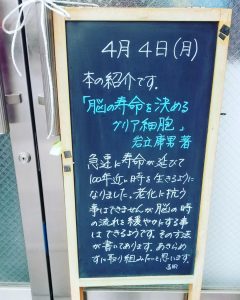 4月4日(月)
本の紹介です。
「脳の寿命を決める
グリア細胞」
岩立康男 著
急速に寿命が延びて
100年近い時を生きるように
なりました。老化に抗う
事はできませんが脳の時
の流れを緩やかにする事
はできるようです。その方法
が書いてあります。あきらめ
ずに取り組みたいと思います。